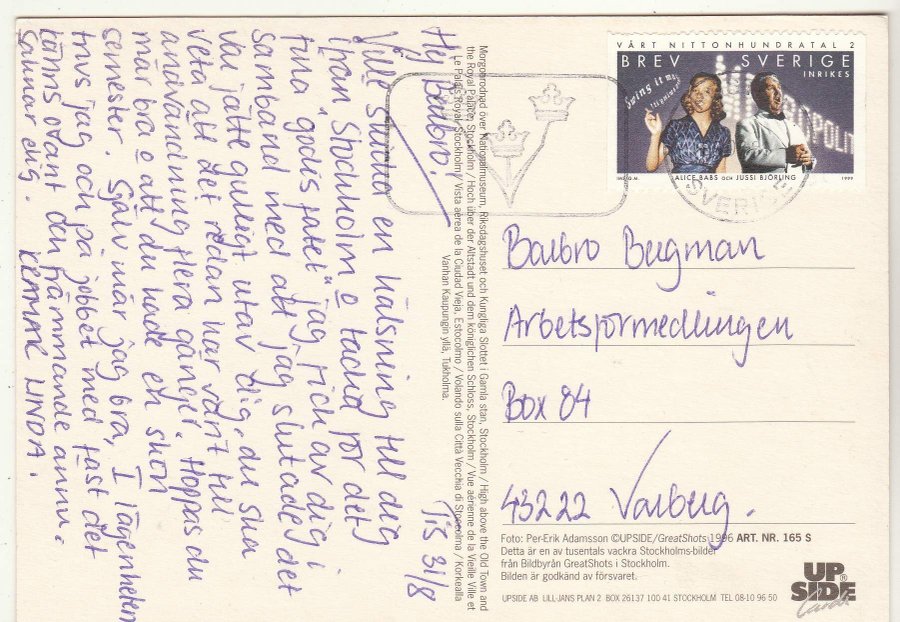 Hej Barbro! Tis 31/8
Ville skicka en hälsning till dig
ifrån Stockholm o tacka för det
fina "godis fatet" jag fick av dig i
samband med att jag slutade det
var jätte gulligt utav dig. du ska
veta att det redan har värt till
användning flera gånger. Hoppas du
mår bra o att du hade en skön
semester. Själv mår jag bra, I lägenheten
trivs jag och på jobbet med fast det
känns ovant den främmande ännu.
Saknar dig. KRAMAR LINDA.
Morgonrodnad över Nationalmuseum, Riksdagshuset och Kungliga Slottet i Gamla stan, Stockholm / High above the Old Town and
the Royal Palace, Stockholm / Hoch über der Altstadt und dem königlichen Schloss, Stockholm / Vue aérienne de la Vieille Ville et
Le Palais Royal, Stockholm / Vista aérea de la Ciudad Vieja, Estocolmo / Volando sulla Città Vecchia di Stoccolma / Korkealla
Vanhan Kaupungin yllä, Tukholma.
VÅRT NITTONHUNDRATAL 2
BREV SVERIGE
INRIKES
Swing it
ALICE BABS OCH JUSSI BJÖRLING
1999
SVERIGE
Barbro Bergman
Arbetsförmedlingen
Box 84
43222 Varberg.
Foto: Per-Erik Adamsson ©UPSIDE/GreatShots 1996 ART. NR. 165 S
Detta är en av tusentals vackra Stockholms-bilder
från Bildbyrån GreatShots i Stockholm.
Bilden är godkänd av försvaret.
UPSIDE AB LILL-JANS PLAN 2 BOX 26137 100 41 STOCKHOLM TEL 08-10 96 50
UP
SIDE®
Cards